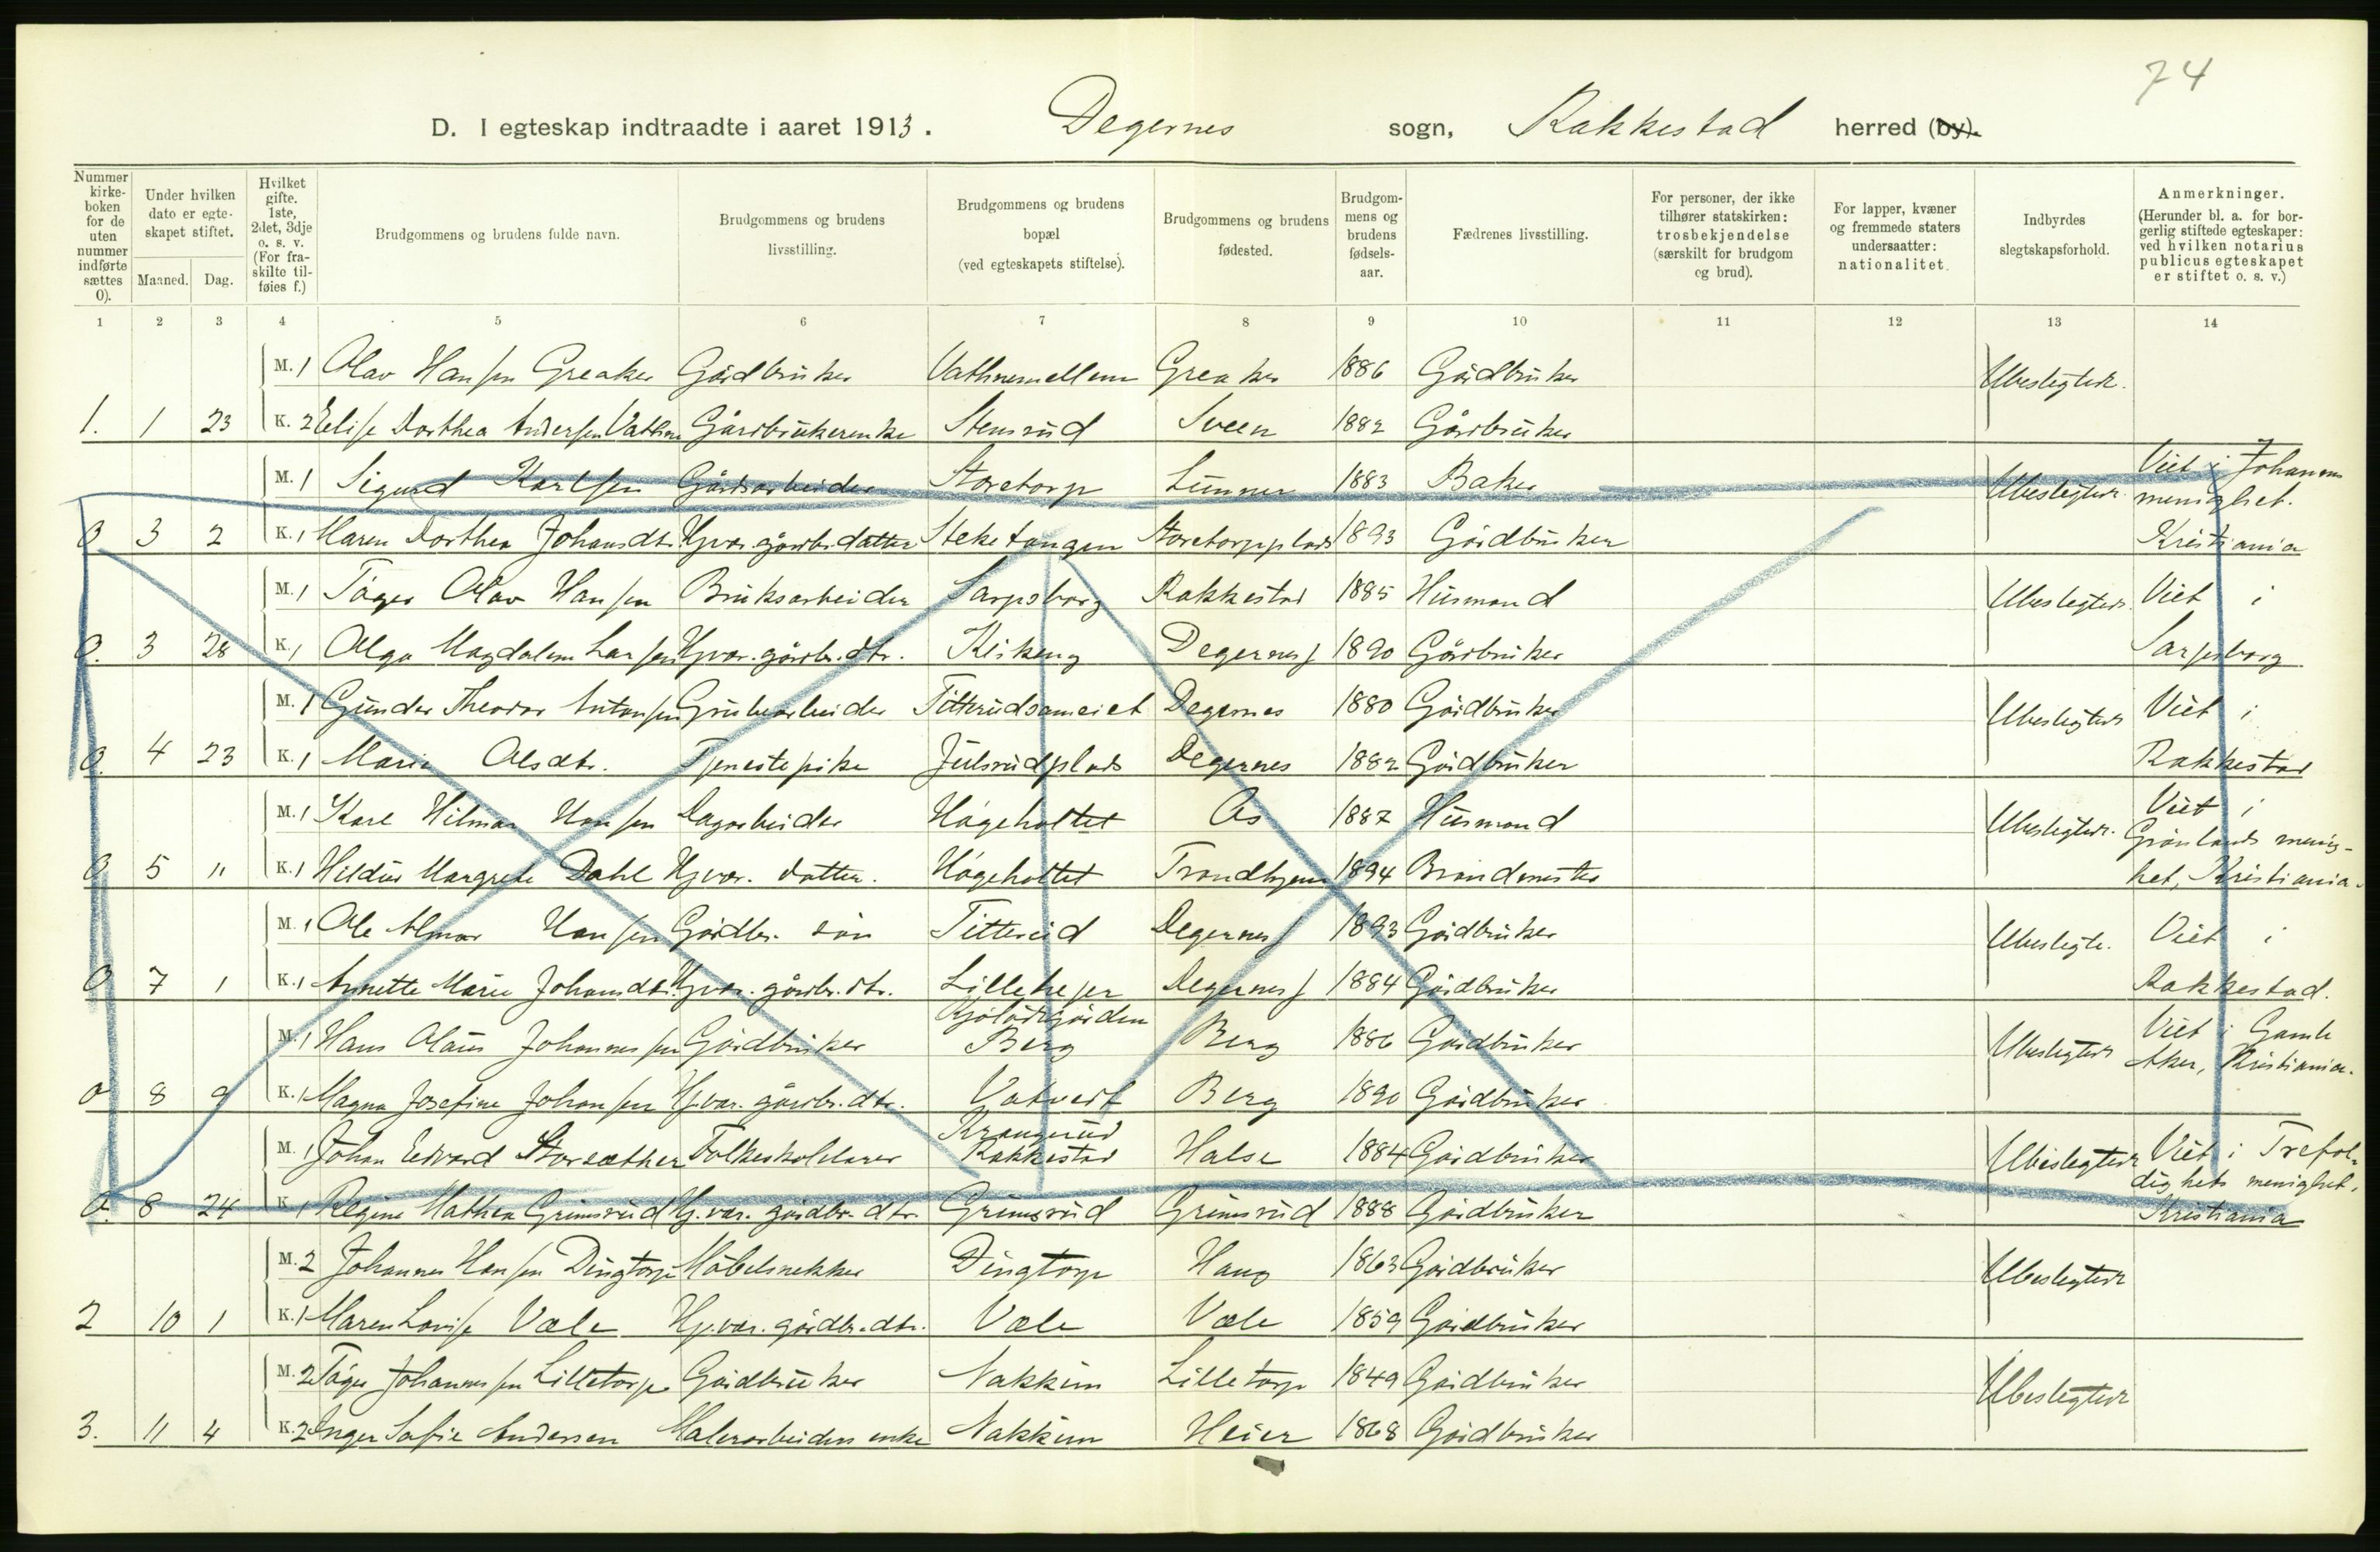 74
D. I egteskap indtraadte i aaret 1913. Degernes sogn, Rakkestad herred (by).
Nummer kirkeboken for de uten nummer indførte sættes 0). Under hvilken dato er egteskapet stiftet. Maaned. Dag. Hvilket gifte. 1ste, 2det, 3dje o. s. v. (For fraskilte tilføies f.) Brudgommens og brudens fulde navn. Brudgommens og brudens livsstilling. Brudgommens og brudens bopæl (ved egteskapets stiftelse). Brudgommens og brudens fødested. Brudgommens og brudens fødselsaar. Fædrenes livsstilling. For personer, der ikke tilhører statskirken: trosbekjendelse (særskilt for brudgom og brud). For lapper, kvæner og fremmede staters undersaatter: nationalitet. Indbyrdes slegtskapsforhold. Anmerkninger. (Herunder bl. a. for borgerlig stiftede egteskaper: ved hvilken notarius publicus egteskapet er stiftet o. s. v.)
1 2 3 4 5 6 7 8 9 10 11 12 13 14
M. 1 Olav Hansen Greaker Gårdbruker Vathnemellem Greaker 1886 Gårdbruker Ubeslegtede.
1. 1 23 K. 2 Elise Dorthea Andersen Vathne Gårdbrukerenke Stensrud Sveen 1882 Gårdbruker
M. 1 Sigurd Karlsen Gårdsarbeider Storetorp Lunner 1883 Baker Ubeslegtede. Viet i Johannes menighet.
0 3 2 K. 1 Maren Dorthea Johansdtr. Hjvær. gårdbr. datter Steketangen Storetorpplads 1893 Gårdbruker Kristiania
M. 1 Tøger Olav Hansen Bruksarbeider Sarpsborg Rakkestad 1885 Husmand Ubeslegtede. Viet i
0. 3 28 K. 1 Olga Magdalene Larsen Hjvær. gårdbr. dtr. Kirkeng Degernes 1890 Gårdbruker Sarpsborg
M. 1 Gunder Theodor Antonsen Grubearbeider Titterudsameiet Degernes 1880 Gårdbruker Ubeslegtede Viet i
0. 4 23 K. 1 Marie Olsdtr. Tjenestepike Julsrudplads Degernes 1882 Gårdbruker Rakkestad
M. 1 Karl Hilmar Hansen Dagarbeider Høgeholtet Ås 1887 Husmand Ubeslegtede. Viet i Grønlands menig-
0 5 11 K. 1 Hildur Margrete Dahl Hjvær. datter. Høgeholtet Trondhjem 1894 Brandmester het, Kristiania.
M. 1 Ole Almar Hansen Gårdbr. søn Titterud Degernes 1893 Gårdbruker Ubeslegte. Viet i
0 7 1 K. 1 Annette Marie Johansdtr. Hjvær. gårdbr. dtr. Lilleheier Degernes 1884 Gårdbruker Rakkestad.
M. 1 Hans Olaus Johannessen Gårdbruker Berg Berg 1886 Gårdbruker Ubeslegtede Viet i Gamle Aker, Kristiania.
0 8 9 K. 1 Magna Josefine Johansen Hjvær. gårdbr. dtr. Vatvedt Berg 1890 Gårdbruker
M. 1 Johan Edvard Storsæther Folkeskolelærer Krangerud Rakkestad Halse 1884 Gårdbruker Ubeslegtede Viet i Trefoldighets menighet,
0. 8 24 K. 1 Regine Mathea Grimsrud Hj.vær. gårdbr. dtr. Grimsrud Grimsrud 1888 Gårdbruker Kristiania
M. 2 Johannes Hansen Dingtorp Møbelsnekker Dingtorp Haug 1863 Gårdbruker Ubeslegtede
2 10 1 K. 1 Maren Lovise Væle Hj.vær. gårdbr. dtr. Væle Væle 1859 Gårdbruker
M. 2 Tøger Johannessen Lilletorp Gårdbruker Nakkim Lilletorp 1849 Gårdbruker Ubeslegtede
3. 11 4 K. 2 Inger Sofie Andersen Malerarbeiders enke Nakkim Heier 1868 Gårdbruker